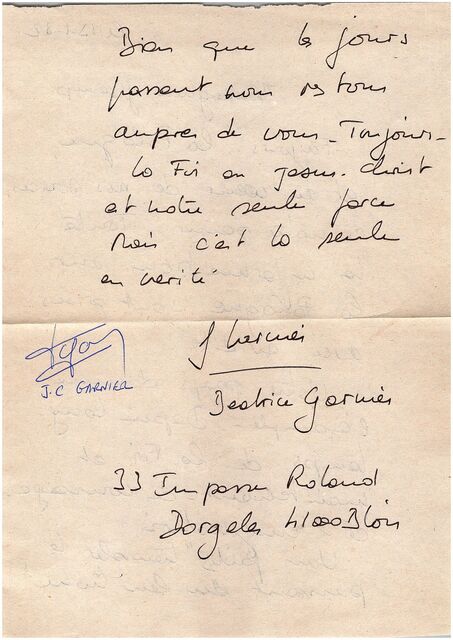 Bien que les jours
passent nous restons
aupres de vous - Toujours -
La Foi en Jesus-Christ
et notre seule force
Mais c'est la seule
en verité
J.C GARNIER
Beatrice Garnier
33 Impasse Roland
Dorgeles 41000 Blois